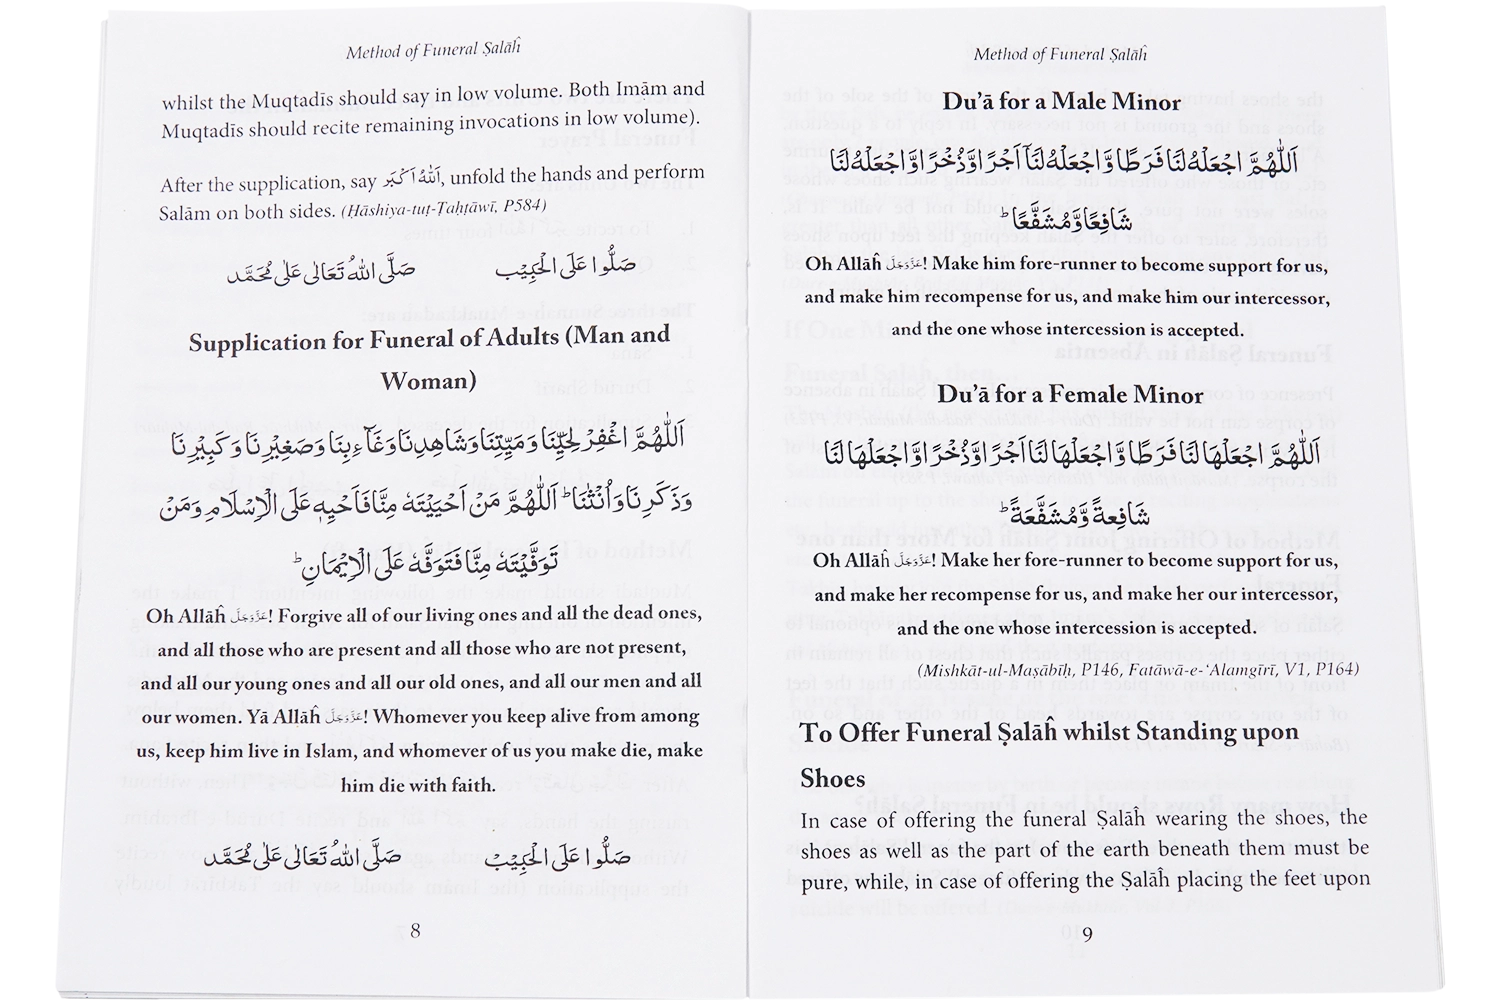 Method of Funeral Ṣalāĥ
whilst the Muqtadīs should say in low volume. Both Imām and
Muqtadīs should recite remaining invocations in low volume).
After the supplication, say اَللّٰهُ اَكْبَر, unfold the hands and perform
Salām on both sides. (Ḥāshiya-tuṭ-Ṭaḥṭāwī, P584)
صَلُّوا عَلَى الْحَبِيْب صَلَّى اللهُ تَعَالٰى عَلٰى مُحَمَّد
Supplication for Funeral of Adults (Man and
Woman)
اَللّٰهُمَّ اغْفِرْ لِحَيِّنَا وَمَيِّتِنَا وَشَاهِدِنَا وَغَآءِبِنَا وَصَغِيْرِنَا وَكَبِيْرِنَا
وَذَكَرِنَا وَاُنْثٰنَا ؕ اَللّٰهُمَّ مَنْ اَحْيَيْتَهٗ مِنَّا فَاَحْيِهٖ عَلَى الْاِسْلَامِ وَمَنْ
تَوَفَّيْتَهٗ مِنَّا فَتَوَفَّهٗ عَلَى الْاِيْمَانِ ؕ
Oh Allāĥ عَزَّوَجَلَّ! Forgive all of our living ones and all the dead ones,
and all those who are present and all those who are not present,
and all our young ones and all our old ones, and all our men and all
our women. Yā Allāĥ عَزَّوَجَلَّ! Whomever you keep alive from among
us, keep him live in Islam, and whomever of us you make die, make
him die with faith.
صَلُّوا عَلَى الْحَبِيْب صَلَّى اللهُ تَعَالٰى عَلٰى مُحَمَّد
8
Method of Funeral Ṣalāĥ
Du'ā for a Male Minor
اَللّٰهُمَّ اجْعَلْهُ لَنَا فَرَطًا وَّاجْعَلْهُ لَنَآ اَجْرًا وَّذُخْرًا وَّاجْعَلْهُ لَنَا
شَافِعًا وَّمُشَفَّعًا ؕ
Oh Allāĥ عَزَّوَجَلَّ! Make him fore-runner to become support for us,
and make him recompense for us, and make him our intercessor,
and the one whose intercession is accepted.
Du'ā for a Female Minor
اَللّٰهُمَّ اجْعَلْهَا لَنَا فَرَطًا وَّاجْعَلْهَا لَنَا اَجْرًا وَّذُخْرًا وَّاجْعَلْهَا لَنَا
شَافِعَةً وَّمُشَفَّعَةً ؕ
Oh Allāĥ عَزَّوَجَلَّ! Make her fore-runner to become support for us,
and make her recompense for us, and make her our intercessor,
and the one whose intercession is accepted.
(Mishkāt-ul-Maṣābīḥ, P146, Fatāwā-e-'Alamgīrī, V1, P164)
To Offer Funeral Ṣalāĥ whilst Standing upon
Shoes
In case of offering the funeral Ṣalāĥ wearing the shoes, the
shoes as well as the part of the earth beneath them must be
pure, while, in case of offering the Ṣalāĥ placing the feet upon
9